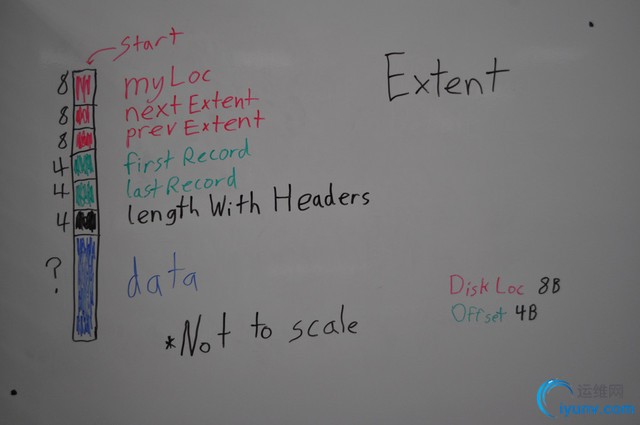 Start
Extent
8 myLoc
8 next Extent
8 prev Extent
4 first Record
4 last Record
4 length With Headers
? data
Disk Loc 8B
Offset 4B
*Not to scale
运维网
iyunv.com